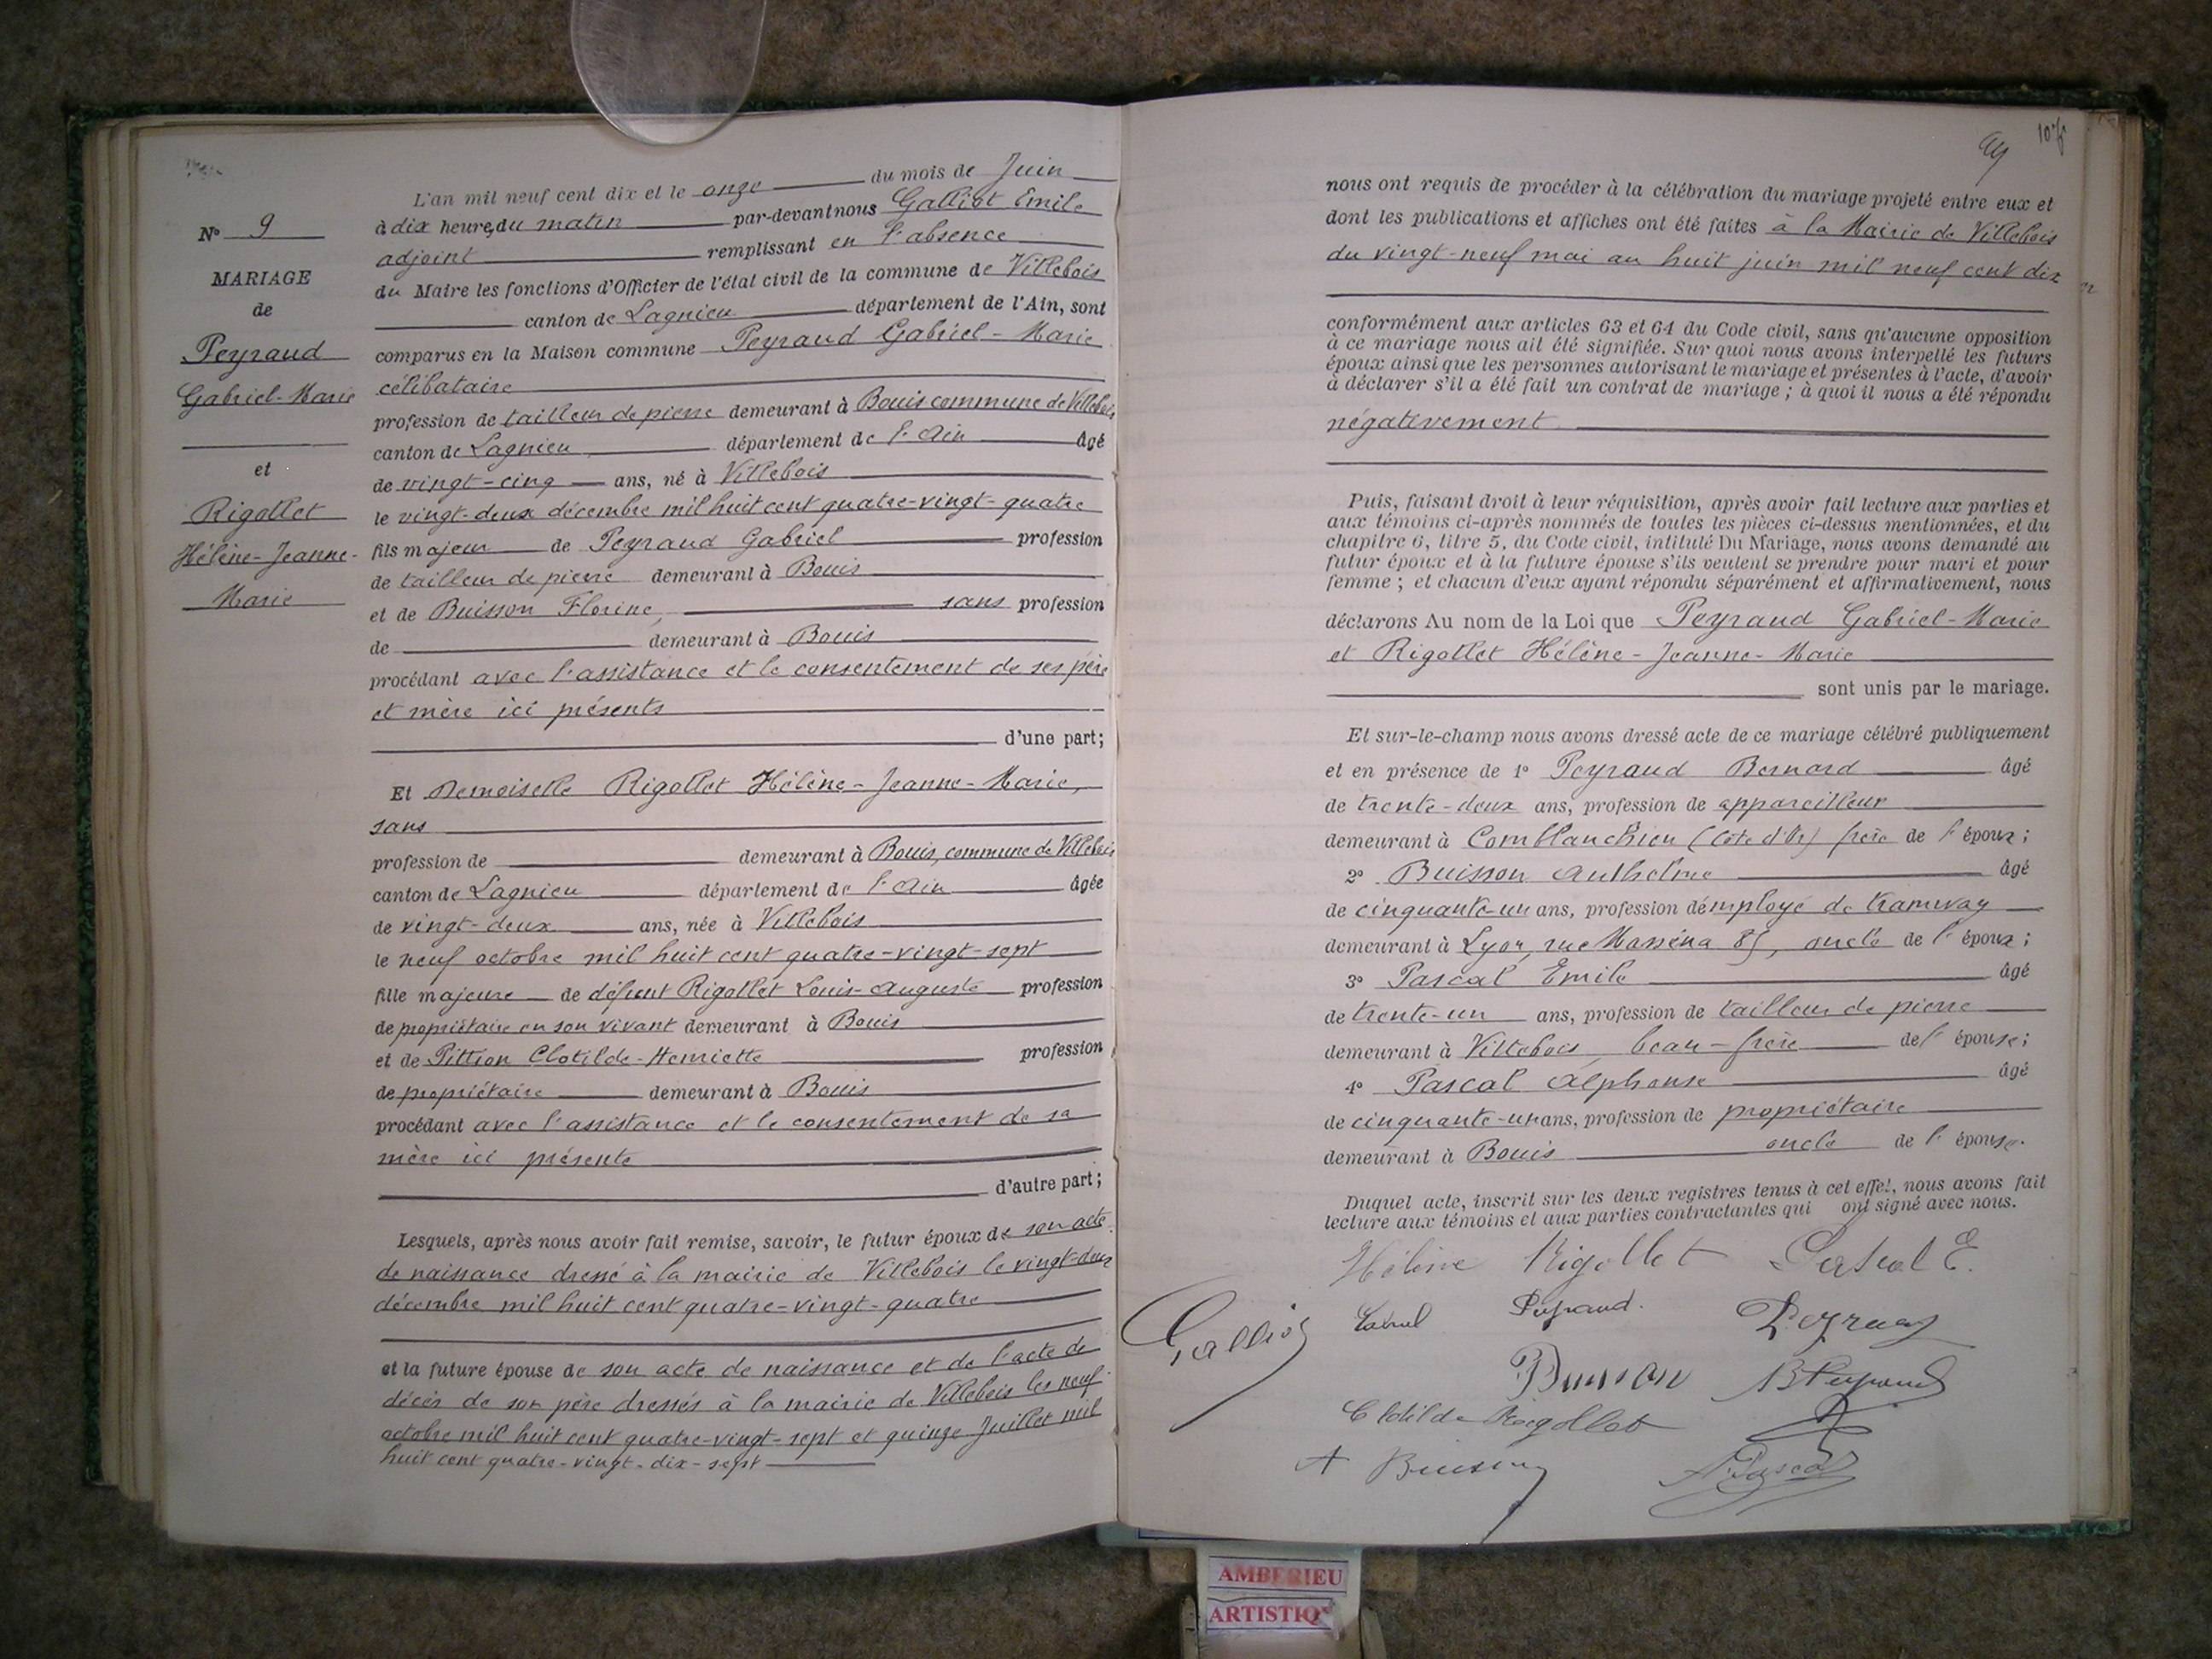 N° 9
MARIAGE
de
Peyraud
Gabriel-Marie
et
Rigollet
Hélène-Jeanne-
Marie
L'an mil neuf cent dix et le onze du mois de Juin
à dix heures du matin par-devant nous Galliot Emile
adjoint remplissant en l'absence
du Maire les fonctions d'Officier de l'état civil de la commune de Villebois
canton de Lagnieu département de l'Ain, sont
comparus en la Maison commune Peyraud Gabriel-Marie
célibataire
profession de tailleur de pierre demeurant à Bouis commune de Villebois
canton de Lagnieu département de l'Ain âgé
de vingt-cinq ans, né à Villebois
le vingt-deux décembre mil huit cent quatre-vingt-quatre
fils majeur de Peyraud Gabriel profession
de tailleur de pierre demeurant à Bouis
et de Buisson Florine, sans profession
de demeurant à Bouis
procédant avec l'assistance et le consentement de ses père
et mère ici présents
d'une part;
Et Demoiselle Rigollet Hélène-Jeanne-Marie,
sans
profession de demeurant à Bouis, commune de Villebois
canton de Lagnieu département de l'Ain âgée
de vingt-deux ans, née à Villebois
le neuf octobre mil huit cent quatre-vingt-sept
fille majeure de défunt Rigollet Louis-Auguste profession
de propriétaire en son vivant demeurant à Bouis
et de Pittion Clotilde-Henriette profession
de propriétaire demeurant à Bouis
procédant avec l'assistance et le consentement de sa
mère ici présente
d'autre part;
Lesquels, après nous avoir fait remise, savoir, le futur époux de son acte
de naissance dressé à la mairie de Villebois le vingt-deux
décembre mil huit cent quatre-vingt-quatre
et la future épouse de son acte de naissance et de l'acte de
décès de son père dressés à la mairie de Villebois les neuf
octobre mil huit cent quatre-vingt-sept et quinze Juillet mil
huit cent quatre-vingt-dix-sept
nous ont requis de procéder à la célébration du mariage projeté entre eux et
dont les publications et affiches ont été faites à la Mairie de Villebois
du vingt-neuf mai au huit juin mil neuf cent dix
conformément aux articles 63 et 64 du Code civil, sans qu'aucune opposition
à ce mariage nous ait été signifiée. Sur quoi nous avons interpellé les futurs
époux ainsi que les personnes autorisant le mariage et présentes à l'acte, d'avoir
à déclarer s'il a été fait un contrat de mariage; à quoi il nous a été répondu
négativement
Puis, faisant droit à leur réquisition, après avoir fait lecture aux parties et
aux témoins ci-après nommés de toutes les pièces ci-dessus mentionnées, et du
chapitre 6, titre 5, du Code civil, intitulé Du Mariage, nous avons demandé au
futur époux et à la future épouse s'ils veulent se prendre pour mari et pour
femme; et chacun d'eux ayant répondu séparément et affirmativement, nous
déclarons Au nom de la Loi que Peyraud Gabriel-Marie
et Rigollet Hélène-Jeanne-Marie
sont unis par le mariage.
Et sur-le-champ nous avons dressé acte de ce mariage célébré publiquement
et en présence de 1° Peyraud Bernard âgé
de trente-deux ans, profession de appareilleur
demeurant à Comblanchien (Côte d'Or) frère de l'époux;
2° Buisson Anthelme âgé
de cinquante-un ans, profession d'employé de tramway
demeurant à Lyon, rue Masséna 85, oncle de l'époux;
3° Pascal Emile âgé
de trente-un ans, profession de tailleur de pierre
demeurant à Villebois, beau-frère de l'épouse;
4° Pascal Alphonse âgé
de cinquante-un ans, profession de propriétaire
demeurant à Bouis oncle de l'épouse.
Duquel acte, inscrit sur les deux registres tenus à cet effet, nous avons fait
lecture aux témoins et aux parties contractantes qui ont signé avec nous.
Hélène Rigollet Pascal E.
Peyraud. Peyraud
Galliot
Buisson B Peyraud
Clotilde Rigollet
A Buisson A. Pascal
AMBERIEU
ARTISTIQ